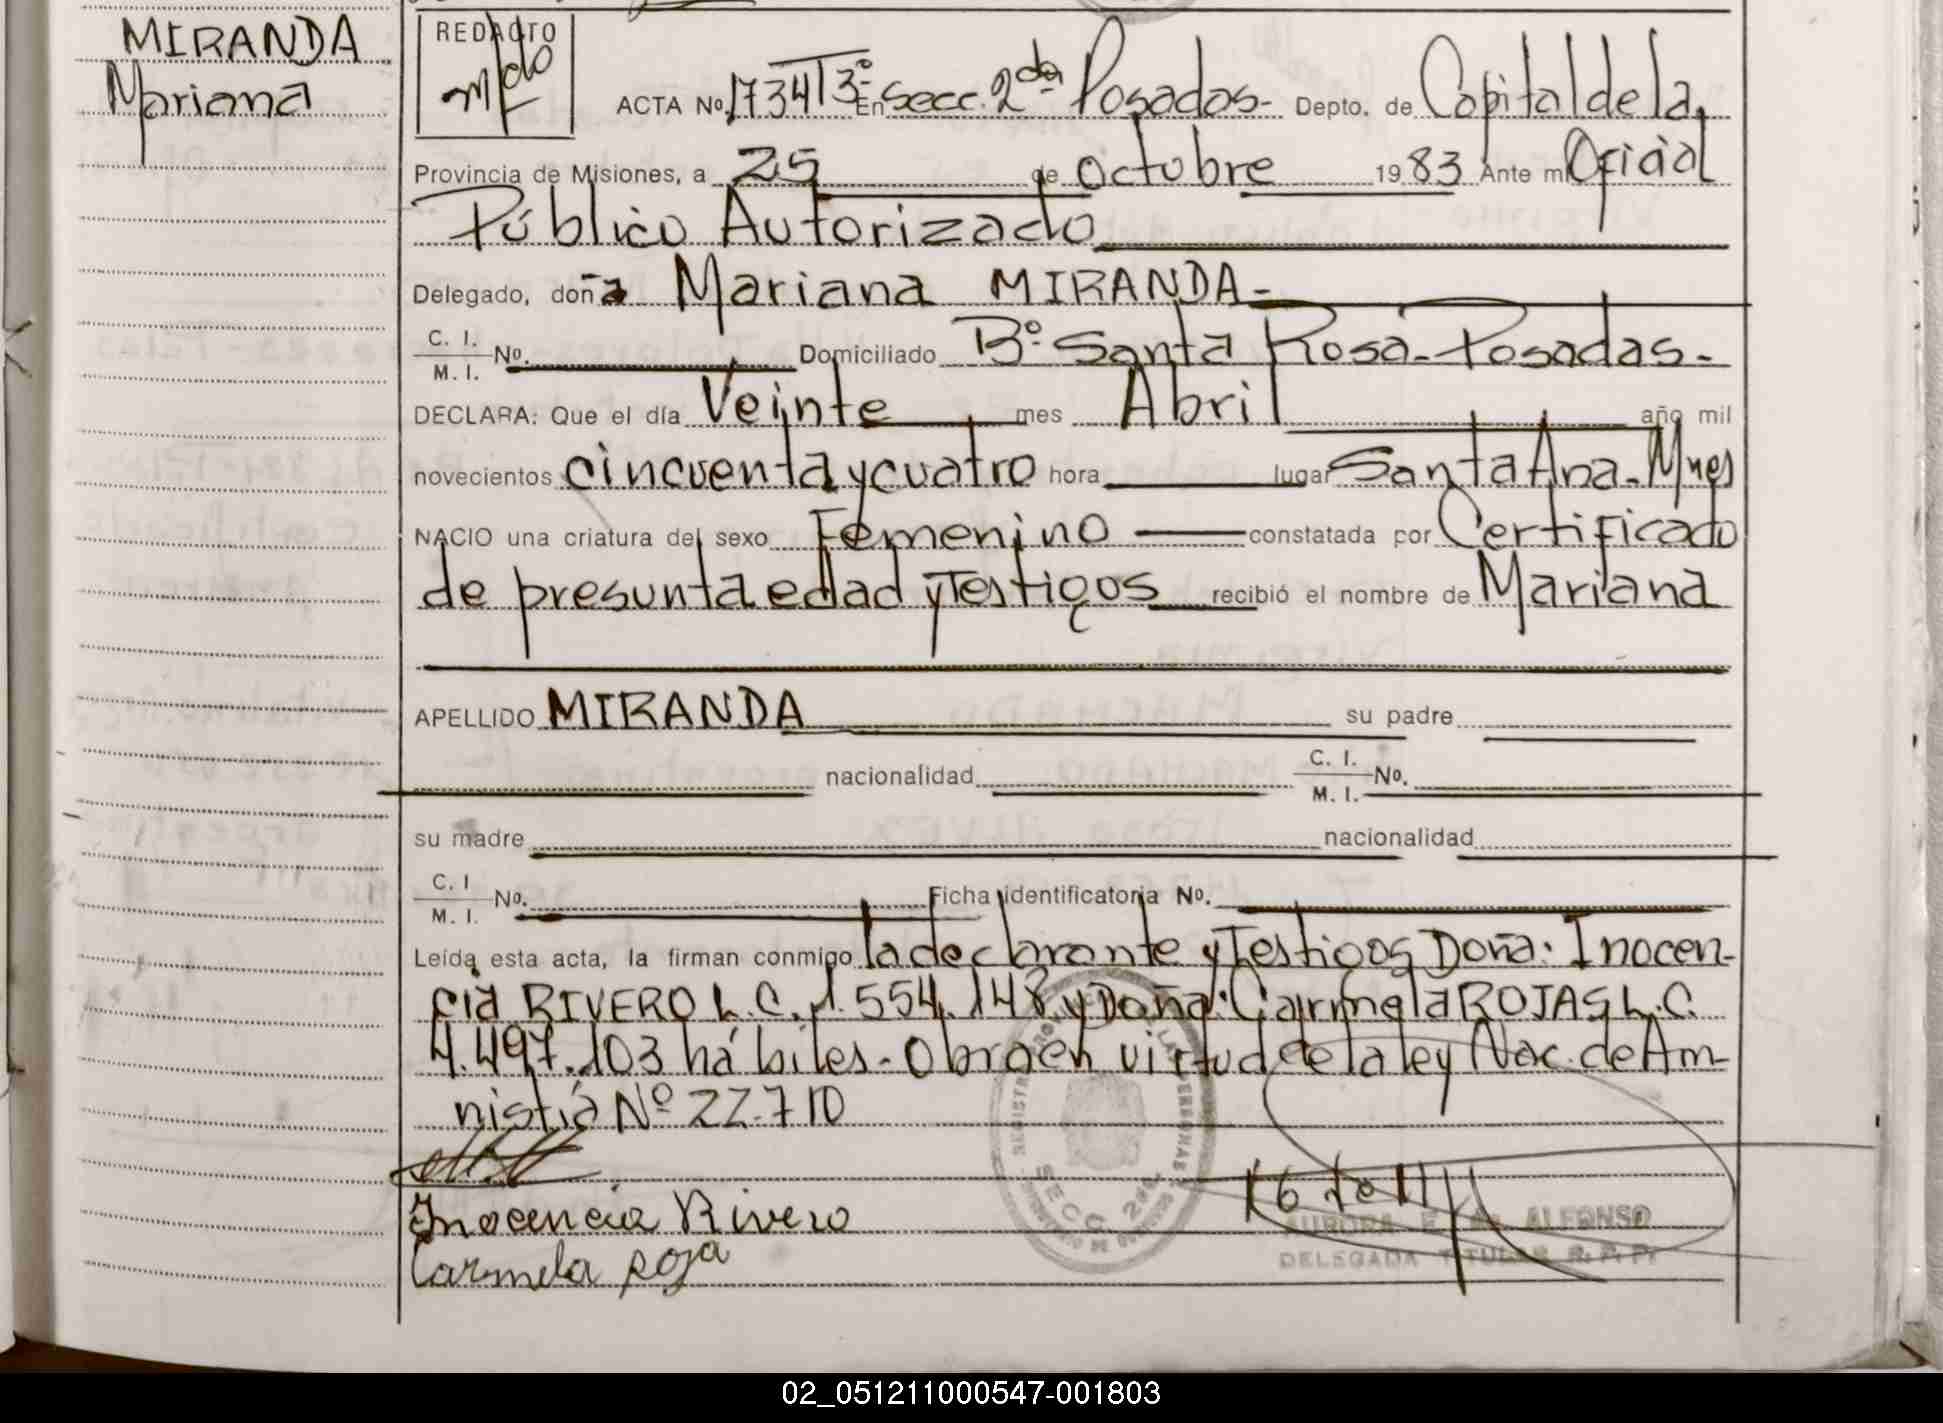 MIRANDA
Mariana
REDACTO
ACTA No. 1734 T3º En Secc. 2da Posadas- Depto. de Capital de la
Provincia de Misiones, a 25 de octubre 1983 Ante mi Oficial
Público Autorizado
Delegado, doña Mariana MIRANDA-
C. I.
M. I. No. Domiciliado Bº Santa Rosa-Posadas-
DECLARA: Que el día Veinte mes Abril año mil
novecientos cincuenta y cuatro hora lugar Santa Ana-Mnes
NACIO una criatura del sexo Femenino constatada por Certificado
de presunta edad y Testigos recibió el nombre de Mariana
APELLIDO MIRANDA su padre
nacionalidad C. I.
M. I. No.
su madre nacionalidad
C. I
M. I. No. Ficha identificatoria No.
Leída esta acta, la firman conmigo la declarante y Testigos Doña: Inocen-
cia RIVERO L.C. 1.554.148 y Doña: Carmela ROJAS L.C.
4.497.103 hábiles-Obra en virtud de la ley Nac. de Am-
nistía Nº 22.710
Inocencia Rivero
Carmela Roja
SECC. 2da.
AURORA E. de ALFONSO
DELEGADA TITULAR R. P. P.
02_051211000547-001803